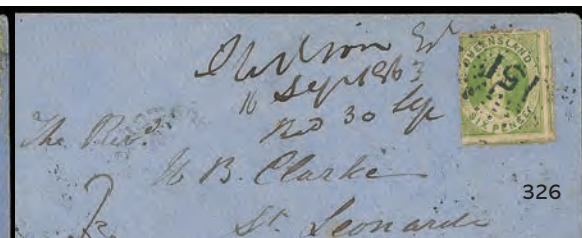 Wilson
16 Sept 1863
30 Sep
The Revd.
W. B. Clarke
St. Leonards
QUEENSLAND
SIXPENCE
151
326